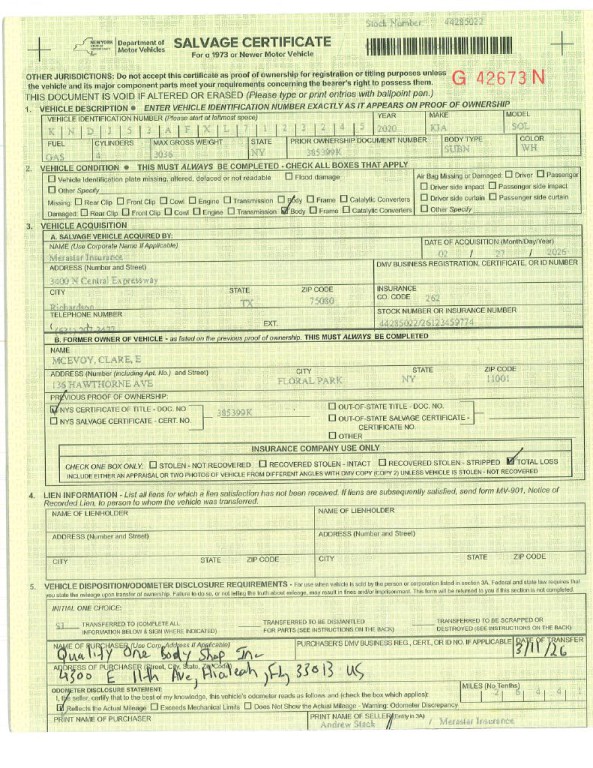 Stock Number: 44285022
NEW YORK Department of Motor Vehicles
SALVAGE CERTIFICATE
For a 1973 or Newer Motor Vehicle
OTHER JURISDICTIONS: Do not accept this certificate as proof of ownership for registration or titling purposes unless
the vehicle and its major component parts meet your requirements concerning the bearer's right to possess them.
G 42673 N
THIS DOCUMENT IS VOID IF ALTERED OR ERASED (Please type or print entries with ballpoint pen.)
1. VEHICLE DESCRIPTION • ENTER VEHICLE IDENTIFICATION NUMBER EXACTLY AS IT APPEARS ON PROOF OF OWNERSHIP
VEHICLE IDENTIFICATION NUMBER (Please start at leftmost space) YEAR MAKE MODEL
2020 KIA SOL
FUEL CYLINDERS MAX GROSS WEIGHT STATE PRIOR OWNERSHIP DOCUMENT NUMBER BODY TYPE COLOR
GAS 4 3036 NY 385399K SUBN WH
2. VEHICLE CONDITION • THIS MUST ALWAYS BE COMPLETED - CHECK ALL BOXES THAT APPLY
Vehicle Identification plate missing, altered, defaced or not readable Flood damage
Air Bag Missing or Damaged: Driver Passenger
Other Specify
Driver side impact Passenger side impact
Missing: Rear Clip Front Clip Cowl Engine Transmission Body Frame Catalytic Converters
Driver side curtain Passenger side curtain
Damaged: Rear Clip Front Clip Cowl Engine Transmission Body Frame Catalytic Converters
Other Specify
3. VEHICLE ACQUISITION
A. SALVAGE VEHICLE ACQUIRED BY:
NAME (Use Corporate Name if Applicable)
DATE OF ACQUISITION (Month/Day/Year)
Merastar Insurance
02 / 27 / 2026
ADDRESS (Number and Street)
DMV BUSINESS REGISTRATION, CERTIFICATE, OR ID NUMBER
3400 N Central Expressway
CITY STATE ZIP CODE
INSURANCE CO. CODE 262
Richardson TX 75080
TELEPHONE NUMBER
STOCK NUMBER OR INSURANCE NUMBER
EXT.
44285022/26123459774
B. FORMER OWNER OF VEHICLE - as listed on the previous proof of ownership. THIS MUST ALWAYS BE COMPLETED
NAME
MCEVOY, CLARE, E
ADDRESS (Number (including Apt. No.) and Street) CITY STATE ZIP CODE
136 HAWTHORNE AVE FLORAL PARK NY 11001
PREVIOUS PROOF OF OWNERSHIP:
NYS CERTIFICATE OF TITLE - DOC. NO. 385399K
OUT-OF-STATE TITLE - DOC. NO.
NYS SALVAGE CERTIFICATE - CERT. NO.
OUT-OF-STATE SALVAGE CERTIFICATE - CERTIFICATE NO.
OTHER
INSURANCE COMPANY USE ONLY
CHECK ONE BOX ONLY: STOLEN - NOT RECOVERED RECOVERED STOLEN - INTACT RECOVERED STOLEN - STRIPPED TOTAL LOSS
INCLUDE EITHER AN APPRAISAL OR TWO PHOTOS OF VEHICLE FROM DIFFERENT ANGLES WITH DMV COPY (COPY 2) UNLESS VEHICLE IS STOLEN - NOT RECOVERED
4. LIEN INFORMATION - List all liens for which a lien satisfaction has not been received. If liens are subsequently satisfied, send form MV-901, Notice of
Recorded Lien, to person to whom the vehicle was transferred.
NAME OF LIENHOLDER NAME OF LIENHOLDER
ADDRESS (Number and Street) ADDRESS (Number and Street)
CITY STATE ZIP CODE CITY STATE ZIP CODE
5. VEHICLE DISPOSITION/ODOMETER DISCLOSURE REQUIREMENTS - For use when vehicle is sold by the person or corporation listed in section 3A. Federal and state law requires that
you state the mileage upon transfer of ownership. Failure to do so, or not telling the truth about mileage, may result in fines and/or imprisonment. This form will be returned to you if this section is not completed.
INITIAL ONE CHOICE:
TRANSFERRED TO (COMPLETE ALL INFORMATION BELOW & SIGN WHERE INDICATED)
TRANSFERRED TO BE DISMANTLED FOR PARTS (SEE INSTRUCTIONS ON THE BACK)
TRANSFERRED TO BE SCRAPPED OR DESTROYED (SEE INSTRUCTIONS ON THE BACK)
NAME OF PURCHASER (Use Corp. Address if Applicable)
PURCHASER'S DMV BUSINESS REG., CERT. OR ID NO. IF APPLICABLE
DATE OF TRANSFER
Quality One Body Shop Inc
3/11/26
ADDRESS OF PURCHASER (Street, City, State, Zip Code)
4300 E 11th Ave, Hialeah, FL, 33013 US
ODOMETER DISCLOSURE STATEMENT:
MILES (No Tenths)
I, the seller, certify that to the best of my knowledge, this vehicle's odometer reads as follows and (check the box which applies):
Reflects the Actual Mileage Exceeds Mechanical Limits Does Not Show the Actual Mileage - Warning: Odometer Discrepancy
PRINT NAME OF PURCHASER
PRINT NAME OF SELLER (Entity in 3A)
Andrew Stack / Merastar Insurance